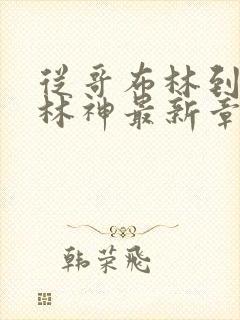 从哥布林到
林神最新章
韩荣飛